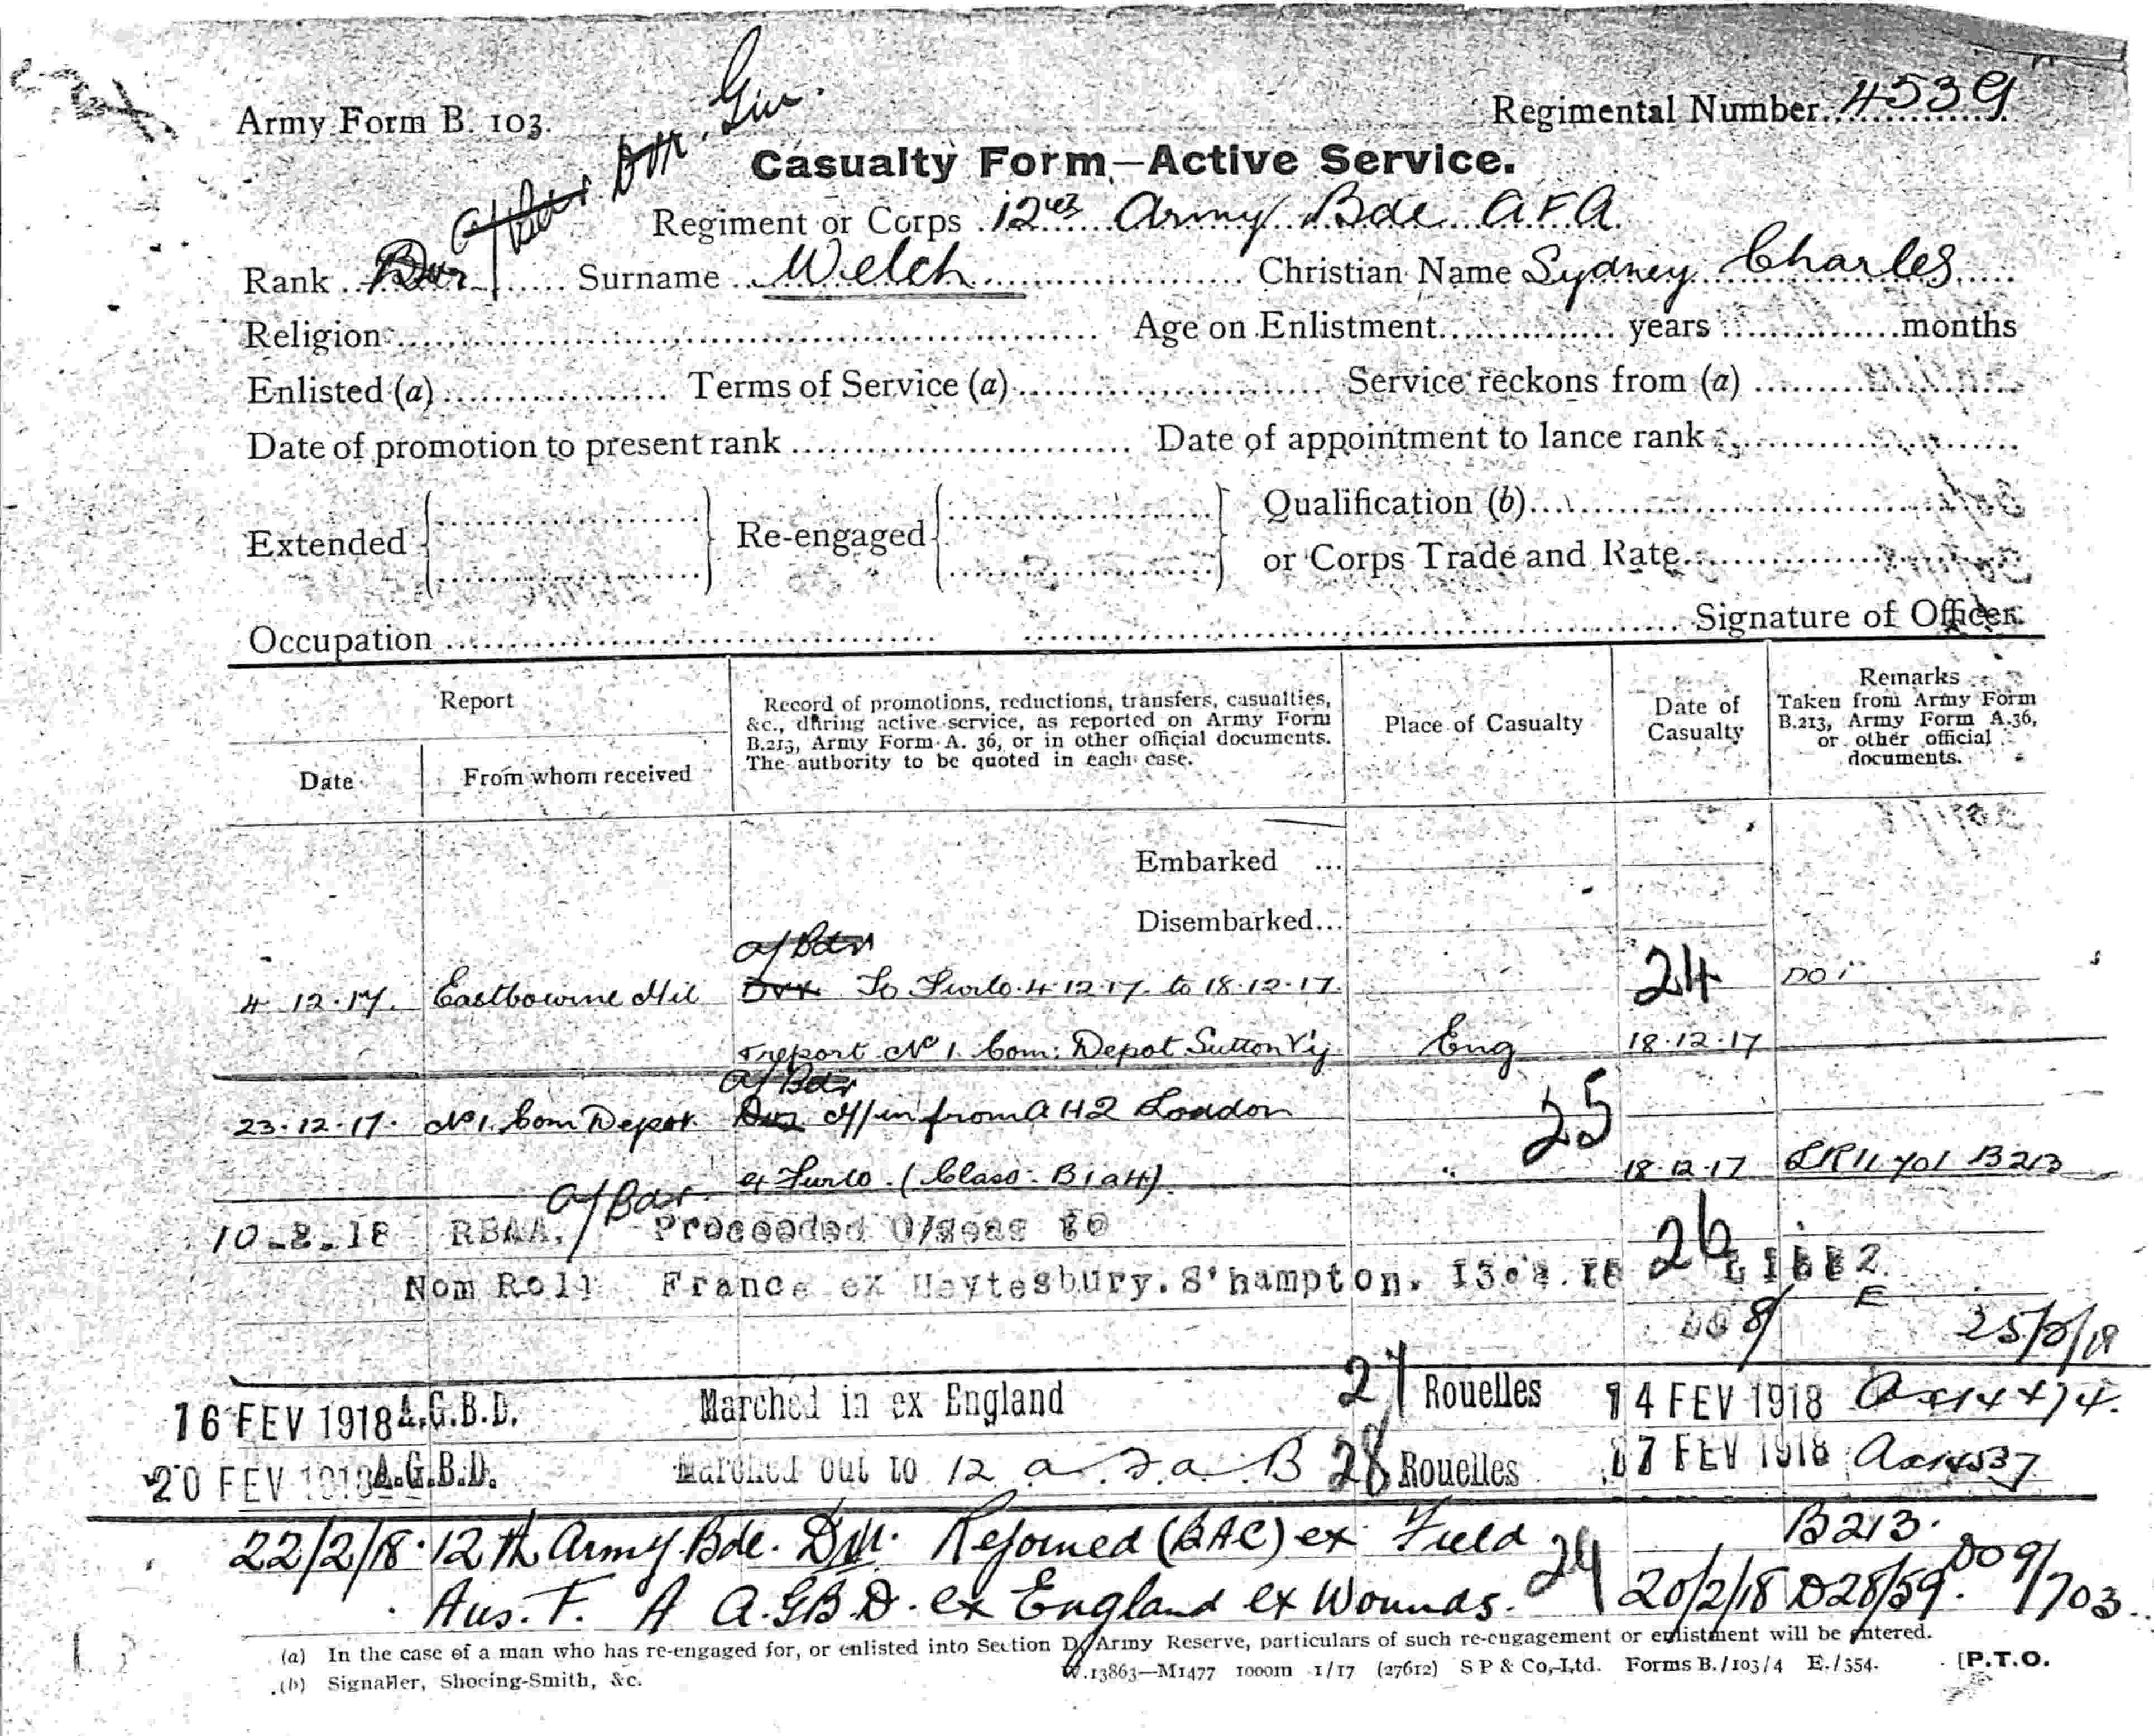 Army Form B. 103.
Regimental Number 4539
Gnr.
Dvr.
A/Bdr
Casualty Form—Active Service.
Regiment or Corps 12th Army Bde A.F.A.
Rank Dvr Surname Welch Christian Name Sydney Charles
Religion Age on Enlistment years months
Enlisted (a) Terms of Service (a) Service reckons from (a)
Date of promotion to present rank Date of appointment to lance rank
Extended Re-engaged Qualification (b)
or Corps Trade and Rate
Occupation Signature of Officer.
Report
Date From whom received
Record of promotions, reductions, transfers, casualties,
&c., during active service, as reported on Army Form
B.213, Army Form A. 36, or in other official documents.
The authority to be quoted in each case.
Place of Casualty
Date of
Casualty
Remarks
Taken from Army Form
B.213, Army Form A.36,
or other official
documents.
Embarked ...
Disembarked...
A/Bdr
4.12.17. Eastbourne Mil Dvr To Furlo. 4.12.17. to 18.12.17. 24 DO
& report No 1. Com: Depot Sutton V'y Eng 18.12.17
A/Bdr
23.12.17. No 1. Com Depot. Dvr M/in from AHQ London 25
ex Furlo. (Class: B1a4) " 18.12.17 B213
A/Bdr.
10-2-18 RBAA. Proceeded O/seas to 26
Nom Roll France ex Heytesbury. S'hampton. 13.2.18
DO 8/ 25/2/18
16 FEV 1918 A.G.B.D. Marched in ex England 27 Rouelles 14 FEV 1918
20 FEV 1918 A.G.B.D. Marched out to 12 a.F.a.B 28 Rouelles 17 FEV 1918 Aa14537
22/2/18. 12th Army Bde. Dvr. Rejoined (BAC) ex Field B213.
Aus. F. A A.G.B.D. ex England ex Wounds. 29 20/2/18 D28/59. DO9/703
(a) In the case of a man who has re-engaged for, or enlisted into Section D, Army Reserve, particulars of such re-engagement or enlistment will be entered.
(b) Signaller, Shoeing-Smith, &c.
W.13863—M1477 1000m 1/17 (27612) S P & Co., Ltd. Forms B./103/4 E./354.
[P.T.O.